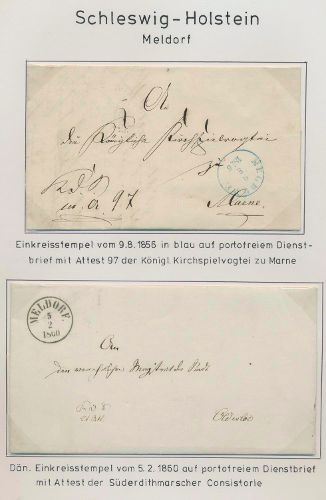 Schleswig-Holstein
Meldorf
An
die Königliche Kirchspielvogtei
zu
Marne.
K.d.S
m. A. 97
MELDORF
Einkreisstempel vom 9.8.1856 in blau auf portofreiem Dienst-
brief mit Attest 97 der Königl. Kirchspielvogtei zu Marne
MELDORF.
5
2
1860
An
den
Magistrat der Stadt
Dän. Einkreisstempel vom 5.2.1860 auf portofreiem Dienstbrief
mit Attest der Süderdithmarscher Consistorie